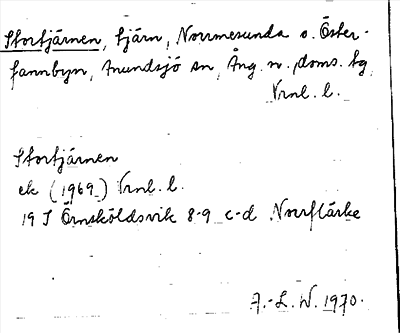 Stortjärnen, tjärn, Norrmesunda o. Öster-
fannbyn, Anundsjö sn, Ång. n. doms. tg
Vrnl. l.
Stortjärnen
ek (1969) Vrnl. l.
19 J Örnsköldsvik 8-9 c-d Norrflärke
A.-L. W. 1970.